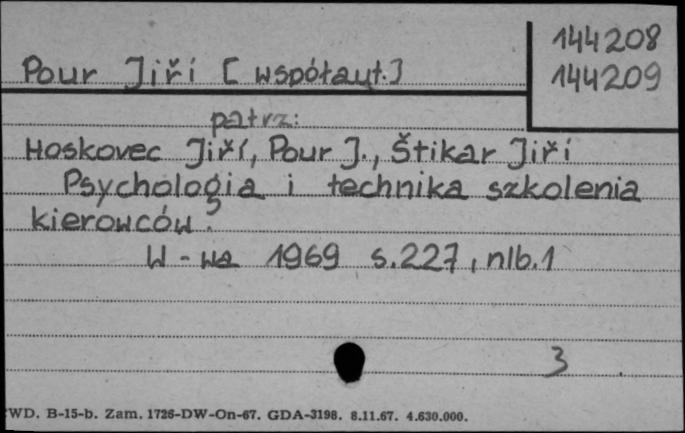 144208
Pour Jiří [współaut.]
144209
patrz:
Hoskovec Jiří, Pour J., Štikar Jiří
Psychologia i technika szkolenia
kierowców.
W-wa 1969 s.227, nlb.1
3
WD. B-15-b. Zam. 1726-DW-On-67. GDA-3198. 8.11.67. 4.630.000.